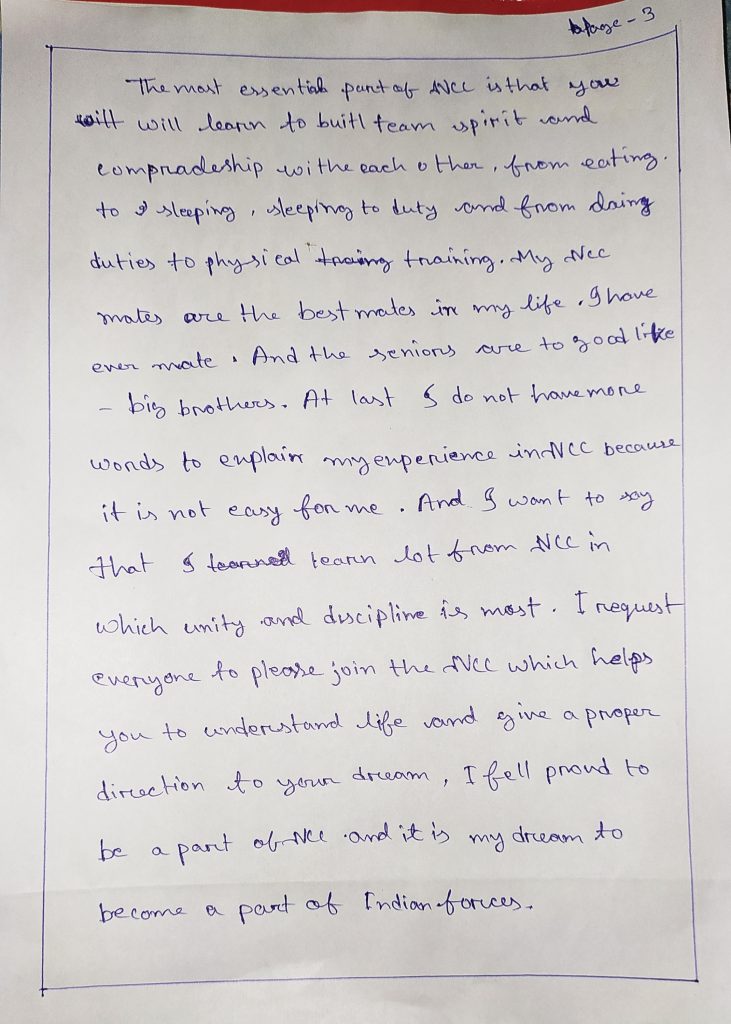 Page - 3
The most essential part of NCC is that you
will will learn to buitl team spirit and
compradeship withe each other, from eating.
to sleeping, sleeping to duty and from daing
duties to physical traing training. My Ncc
mates are the best mates in my life. I have
ever mate. And the seniors are to good like
- big brothers. At last I do not have more
words to explain my experience in NCC because
it is not easy for me. And I want to say
that I learned learn lot from NCC in
which unity and discipline is most. I request
everyone to please join the NCC which helps
you to understand life and give a proper
direction to your dream, I fell proud to
be a part of Ncc and it is my dream to
become a part of Indian forces.